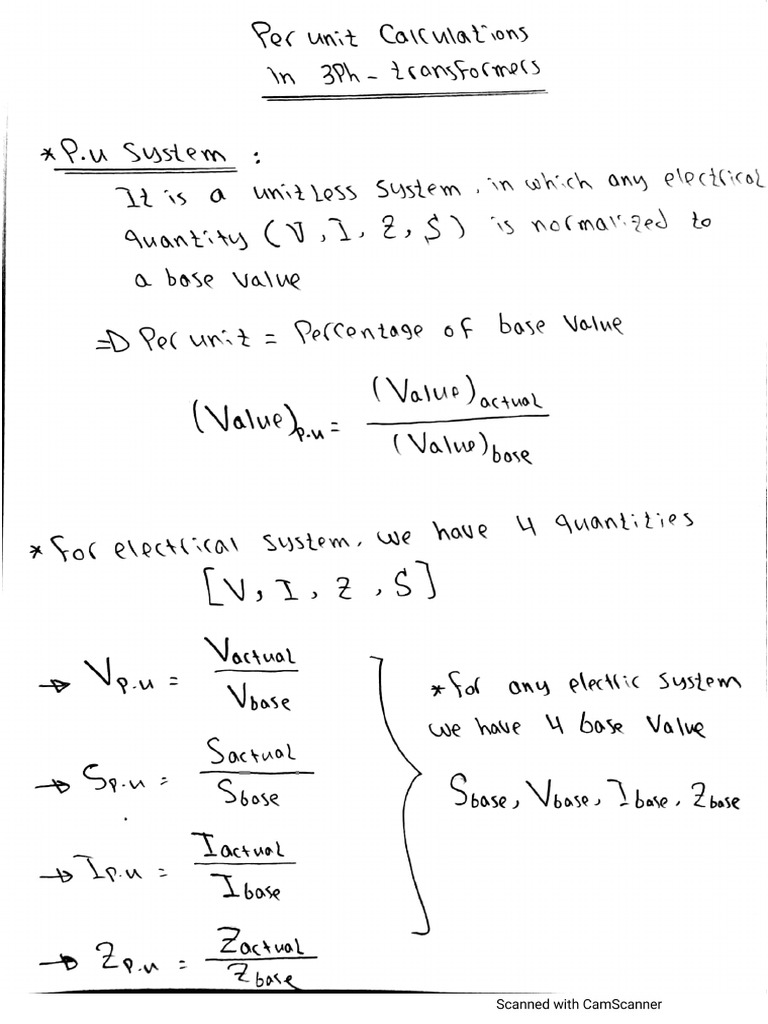 Per unit Calculations
in 3Ph - transformers
* P.u System :
It is a unitless system, in which any electrical
quantity (V, I, Z, S) is normalized to
a base value
=> Per unit = Percentage of base value
(Value)p.u = (Value)actual / (Value)base
* for electrical system, we have 4 quantities
[V, I, Z, S]
→ Vp.u = Vactual / Vbase
→ Sp.u = Sactual / Sbase
→ Ip.u = Iactual / Ibase
→ Zp.u = Zactual / Zbase
* for any electric system
we have 4 base value
Sbase, Vbase, Ibase, Zbase
Scanned with CamScanner